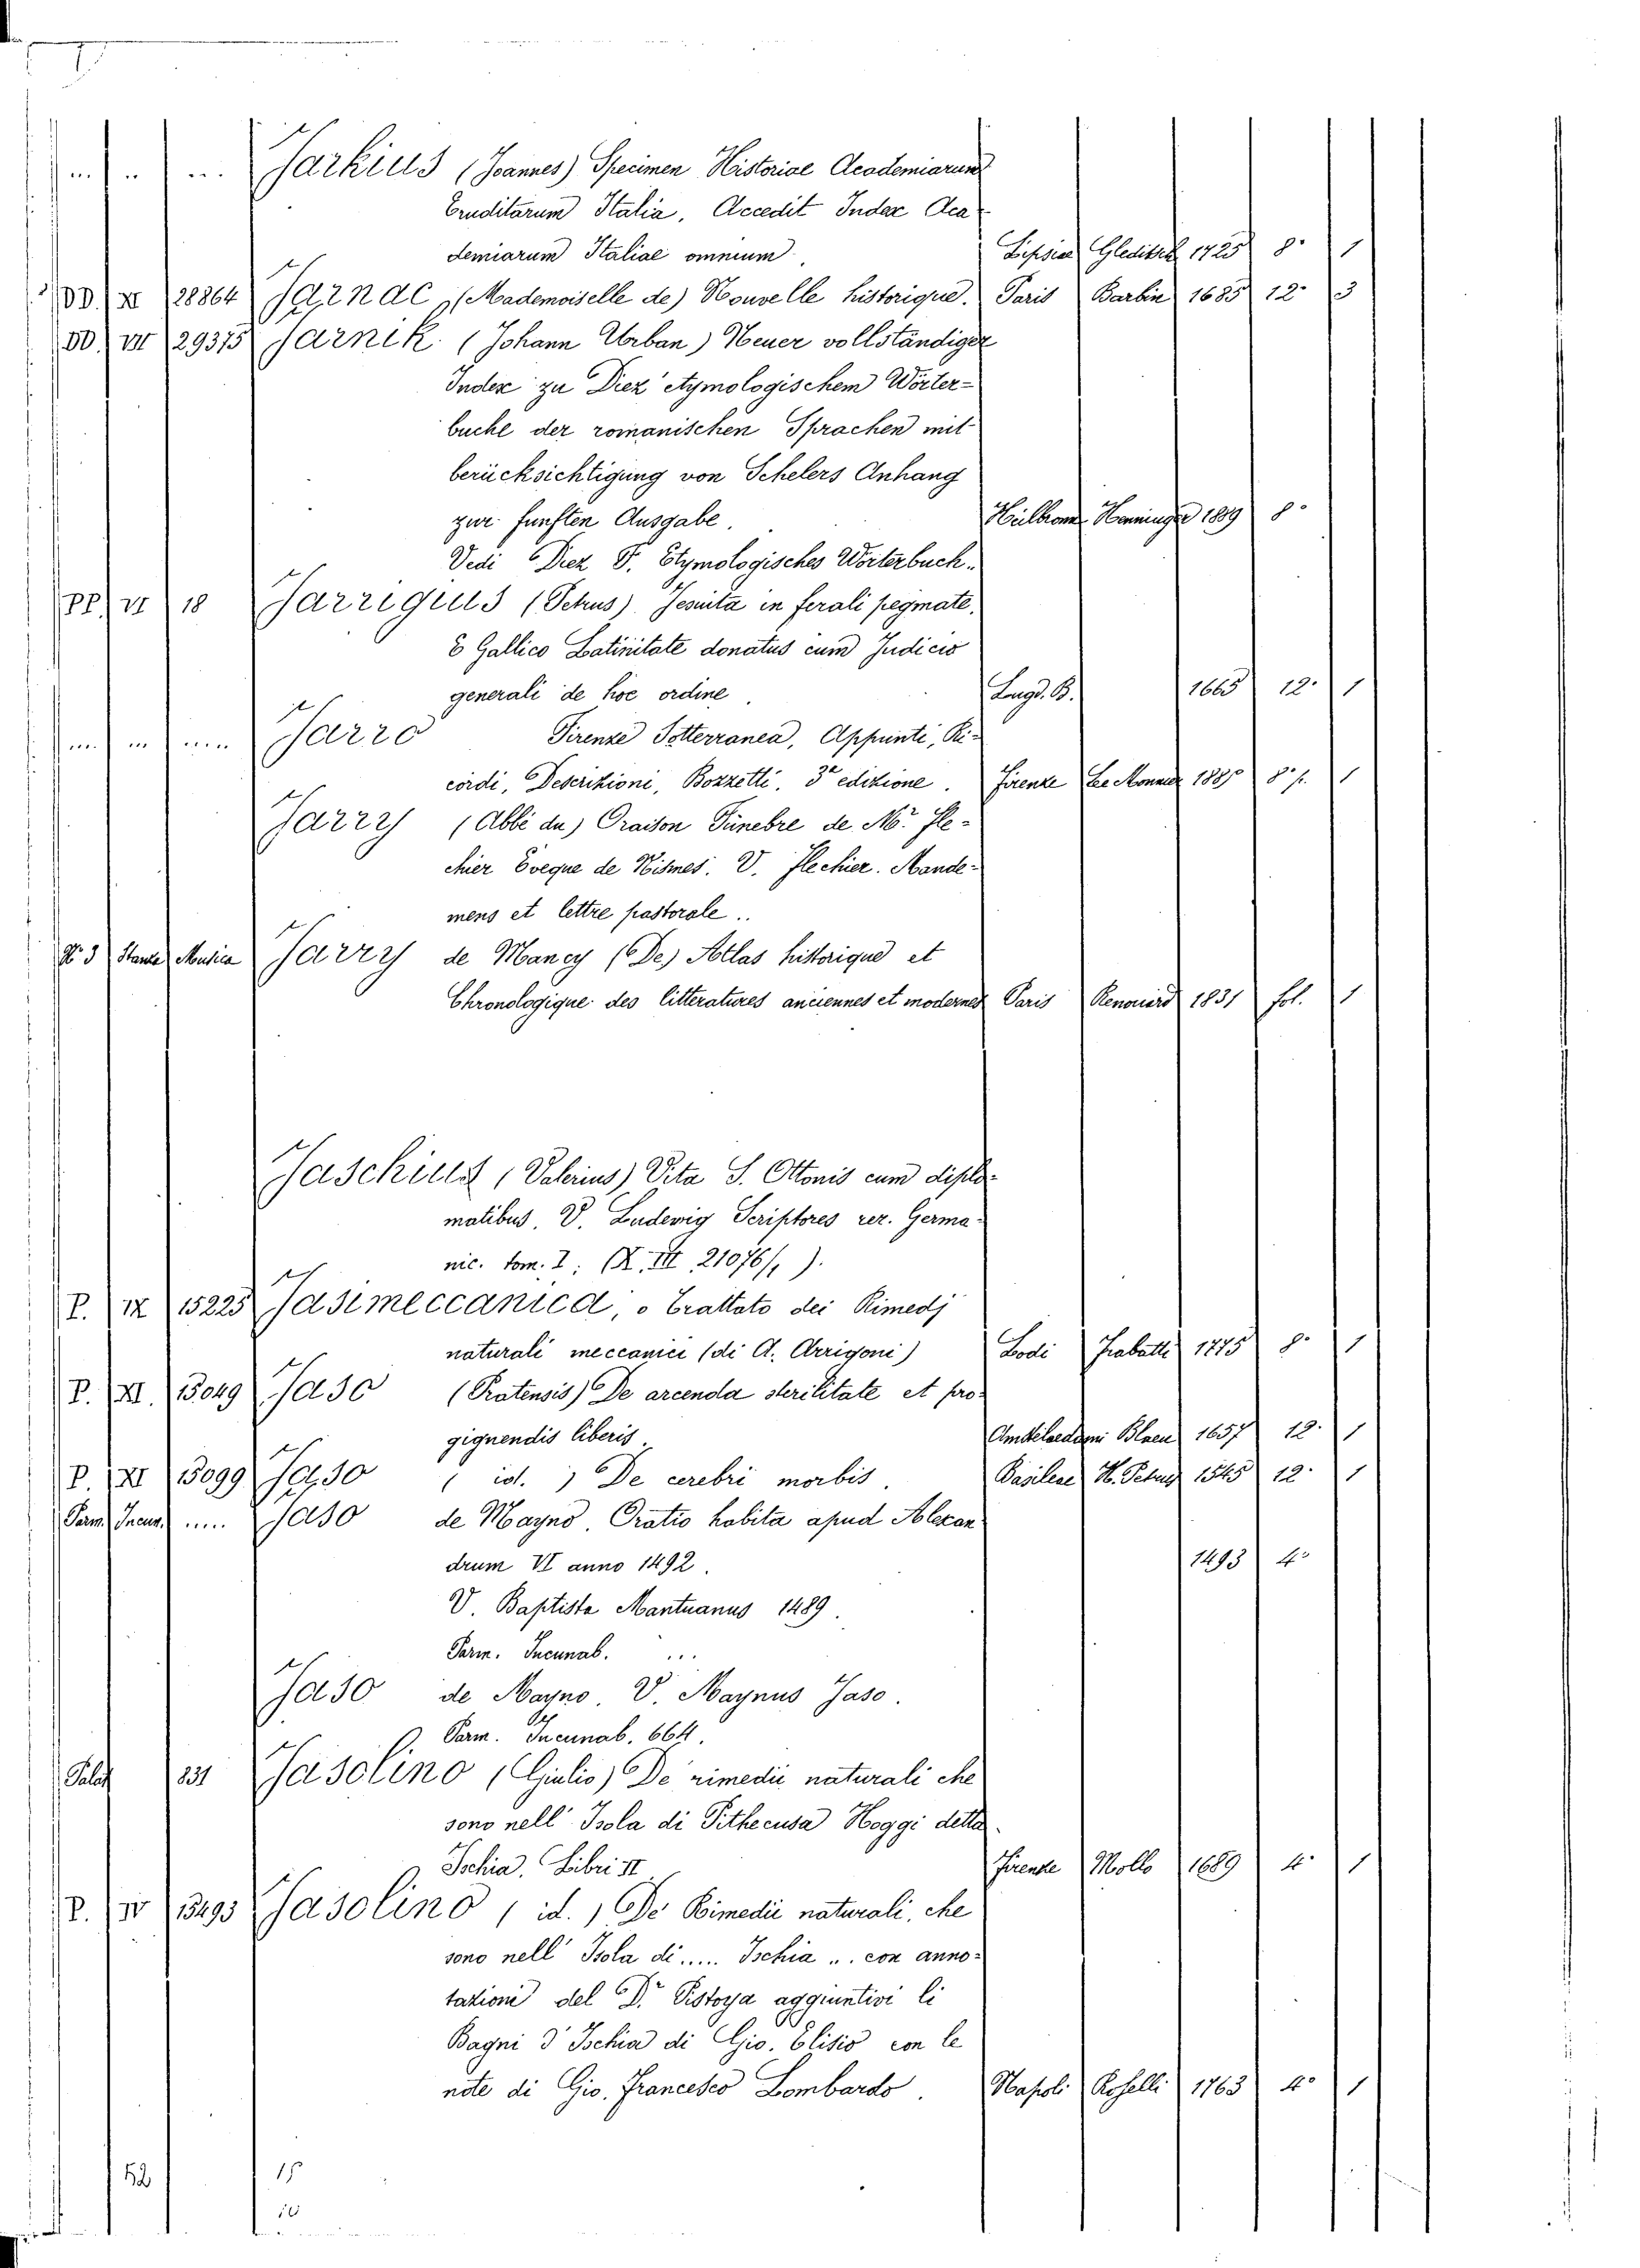 ... .. ... Jarkius (Joannes) Specimen Historiae Academiarum
Eruditarum Italia, Accedit Index Aca
demiarum Italiae omnium. Lipsiae Gleditsch 1725 8° 1
DD. XI 28864 Jarnac (Mademoiselle de) Nouvelle historique. Paris Barbin 1685 12° 3
DD. VII 29375 Jarnik (Johann Urban) Neuer vollständiger
Index zu Diez' etymologischem Wörter=
buche der romanischen Sprachen mit
berücksichtigung von Schelers Anhang
zur funften Ausgabe. Heilbronn Henninger 1889 8°
Vedi Diez F. Etymologisches Wörterbuch.
PP. VI 18 Jarrigius (Petrus) Jesuita in ferali pegmate,
E Gallico Latinitate donatus cum Judicio
generali de hoc ordine. Lugd. B. 1665 12° 1
... ... .... Jarro Firenze Sotterranea, Appunti, Ri-
cordi, Descrizioni, Bozzetti. 3ª edizione. Firenze Le Monnier 8° p. 1
Jarry (Abbé du) Oraison Funebre de Mr. Fle-
chier Eveque de Nismes. V. Flechier. Mande-
mens et lettre pastorale..
N° 3 Stanza Musica Jarry de Mancy (De) Atlas historique et
Chronologique des litteratures anciennes et modernes Paris Renouard 1831 fol. 1
Jaschius (Valerius) Vita S. Ottonis cum diplo-
matibus. V. Ludewig Scriptores rer. Germa-
nic. tom. I; (X. III 21076/1).
P. IX 15225 Jasimeccanica, o Trattato dei Rimedj
naturali meccanici (di A. Arrigoni) Lodi Trabatti 1775 8° 1
P. XI. 15049 Jaso (Pratensis) De arcenda sterilitate et pro-
gignendis liberis. Amstelaedami Blaeu 1657 12° 1
P. XI 15099 Jaso (id.) De cerebri morbis. Basileae H. Petrus 1545 12° 1
Parm. Incun. .... Jaso de Mayno. Oratio habita apud Alexan
drum VI anno 1492. 1493 4°
V. Baptista Mantuanus 1489.
Parm. Incunab. ...
Jaso de Mayno. V. Maynus Jaso.
Parm. Incunab. 664.
Palat 831 Jasolino (Giulio) De' rimedii naturali che
sono nell' Isola di Pithecusa Hoggi detta
Ischia. Libri II Firenze Mollo 1689 4° 1
P. IV 15493 Jasolino (id.) De' Rimedii naturali, che
sono nell' Isola di ..... Ischia ... con anno-
tazioni del Dr. Pistoya aggiuntivi li
Bagni d'Ischia di Gio. Elisio con le
note di Gio. Francesco Lombardo. Napoli Roselli 1763 4° 1
52 15
10